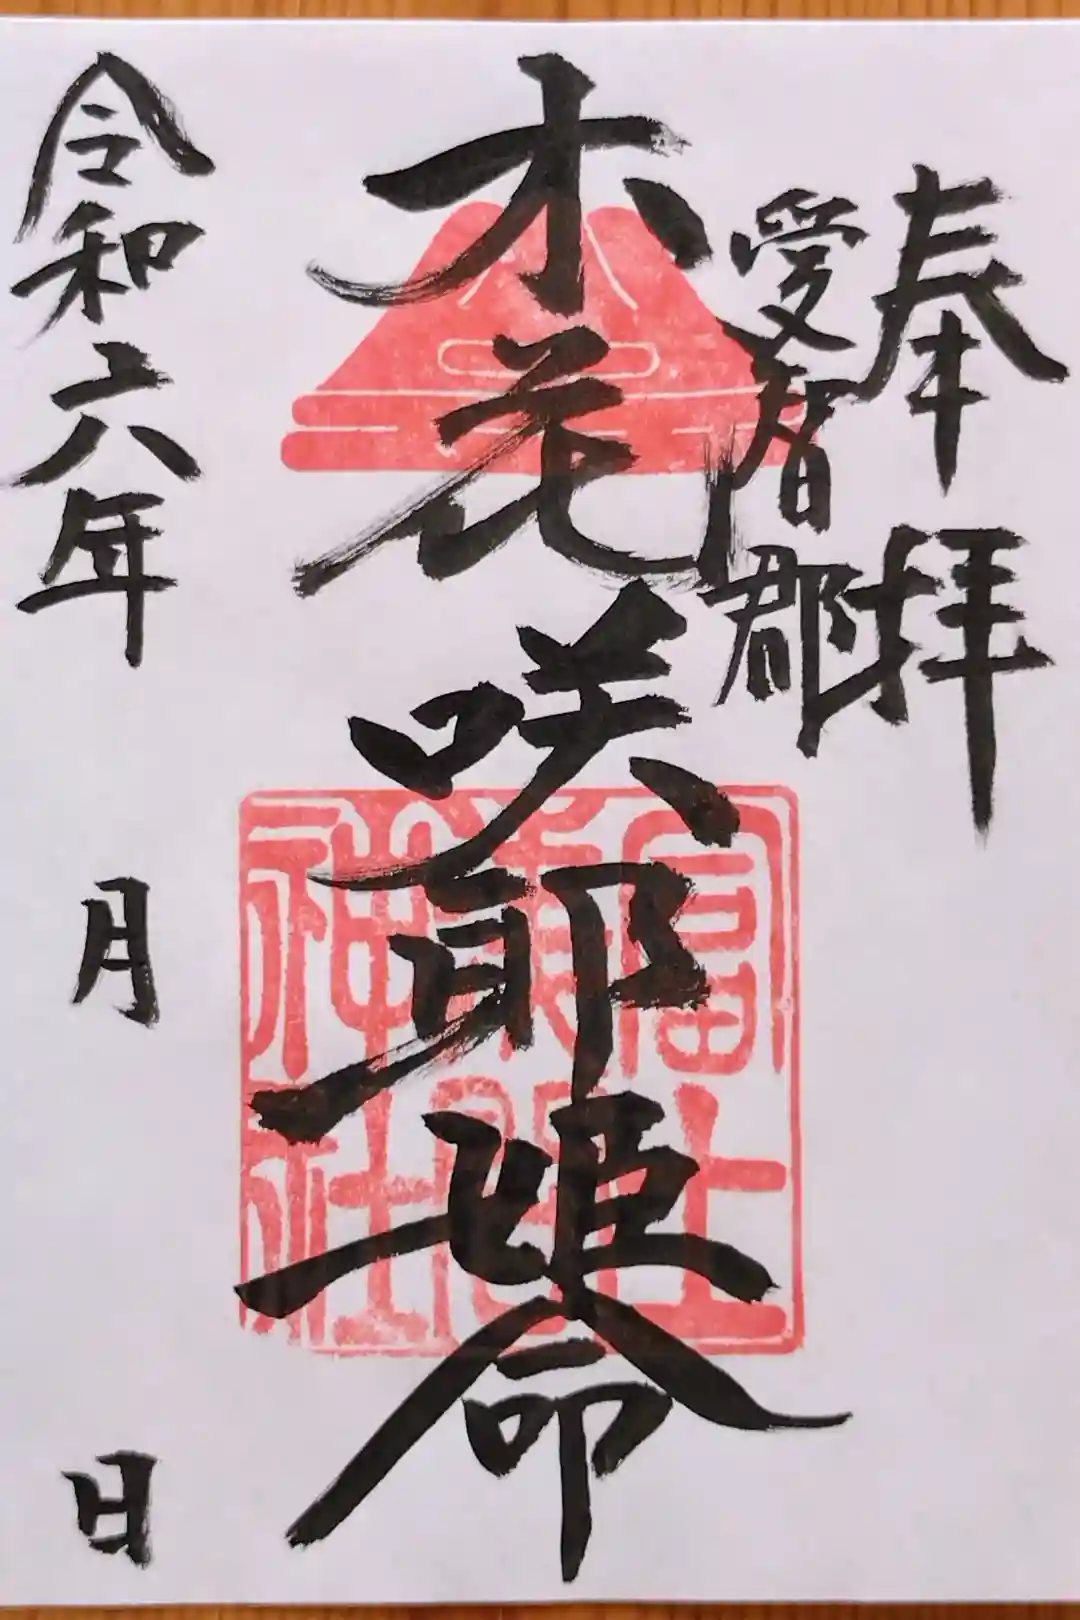 奉拝
愛智郡
木花咲耶姫命
富士
浅間
神社
令和六年 月 日